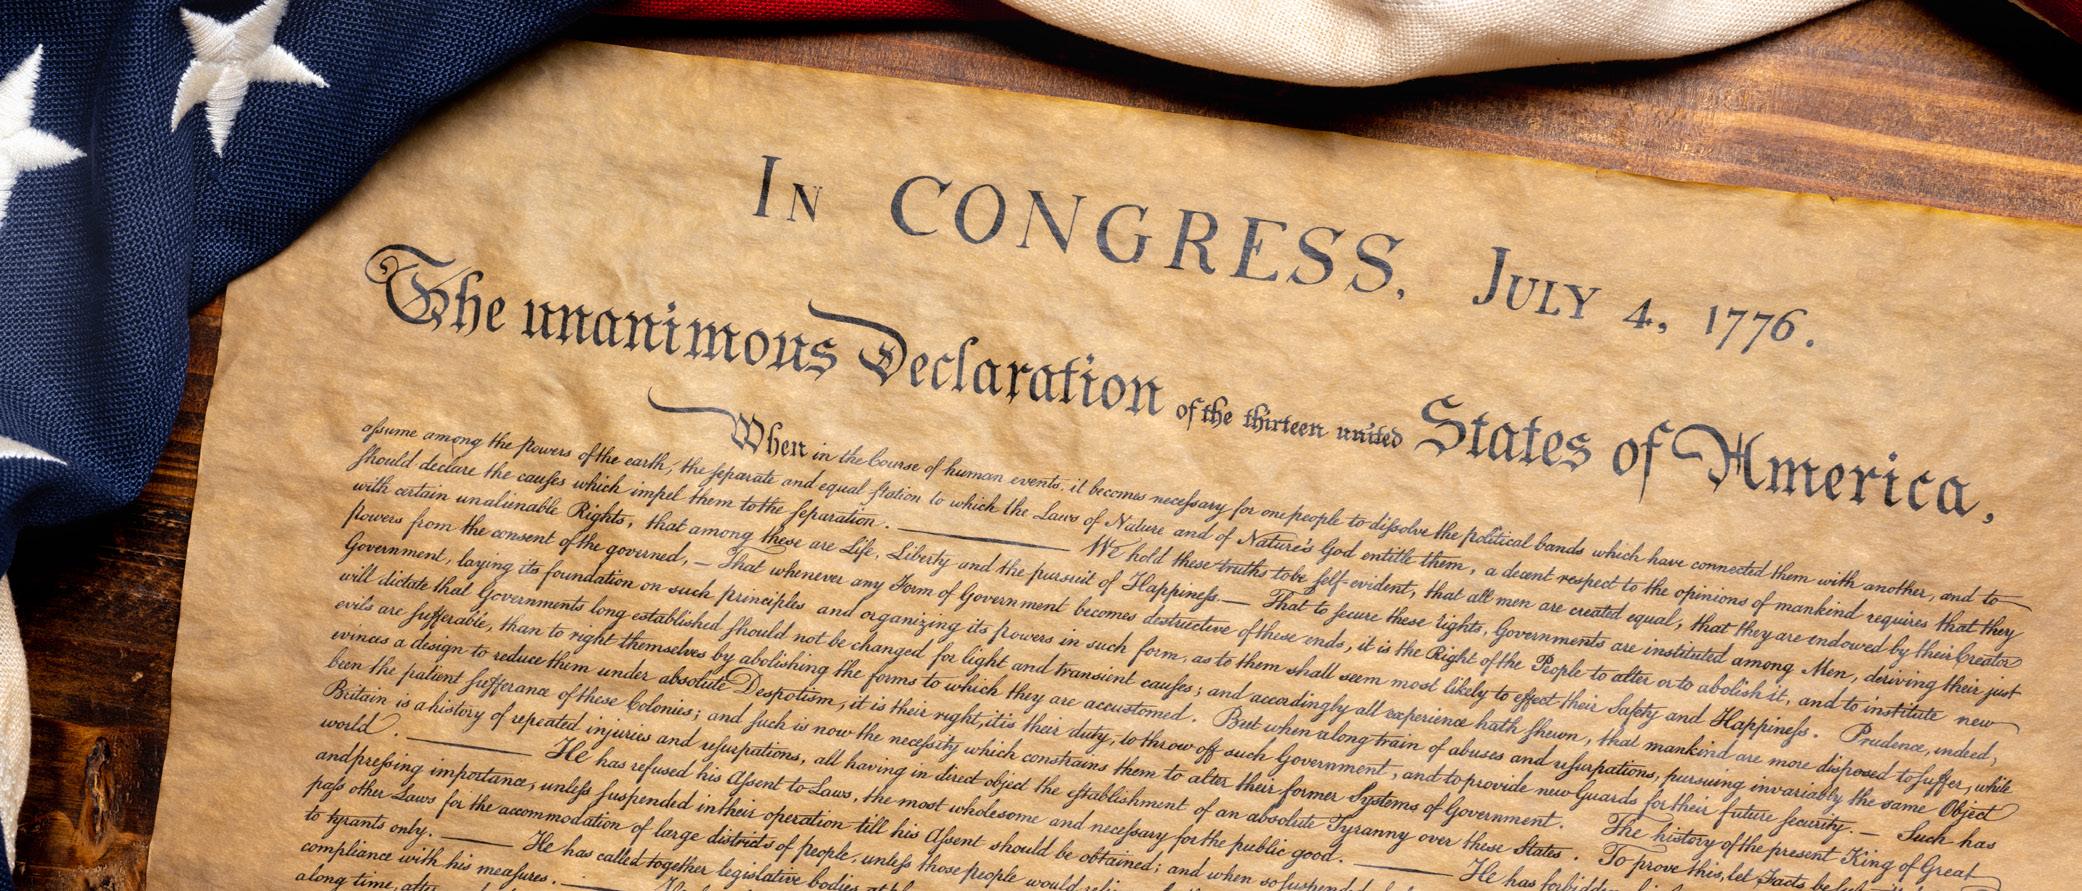 In CONGRESS, July 4, 1776.
The unanimous Declaration of the thirteen united States of America,
When in the Course of human events, it becomes necessary for one people to dissolve the political bands which have connected them with another, and to
assume among the powers of the earth, the separate and equal station to which the Laws of Nature and of Nature's God entitle them, a decent respect to the opinions of mankind requires that they
should declare the causes which impel them to the separation. — We hold these truths to be self-evident, that all men are created equal, that they are endowed by their Creator
with certain unalienable Rights, that among these are Life, Liberty and the pursuit of Happiness.— That to secure these rights, Governments are instituted among Men, deriving their just
powers from the consent of the governed, — That whenever any Form of Government becomes destructive of these ends, it is the Right of the People to alter or to abolish it, and to institute new
Government, laying its foundation on such principles and organizing its powers in such form, as to them shall seem most likely to effect their Safety and Happiness. Prudence, indeed,
will dictate that Governments long established should not be changed for light and transient causes; and accordingly all experience hath shewn, that mankind are more disposed to suffer, while
evils are sufferable, than to right themselves by abolishing the forms to which they are accustomed. But when a long train of abuses and usurpations, pursuing invariably the same Object
evinces a design to reduce them under absolute Despotism, it is their right, it is their duty, to throw off such Government, and to provide new Guards for their future security.— Such has
been the patient sufferance of these Colonies; and such is now the necessity which constrains them to alter their former Systems of Government. The history of the present King of Great
Britain is a history of repeated injuries and usurpations, all having in direct object the establishment of an absolute Tyranny over these States. To prove this, let Facts be
world. — He has refused his Assent to Laws, the most wholesome and necessary for the public good. — He has forbidden
and pressing importance, unless suspended in their operation till his Assent should be obtained; and when so suspended,
pass other Laws for the accommodation of large districts of people, unless those people would
to tyrants only. — He has called together legislative bodies at
compliance with his measures. —
along time, after